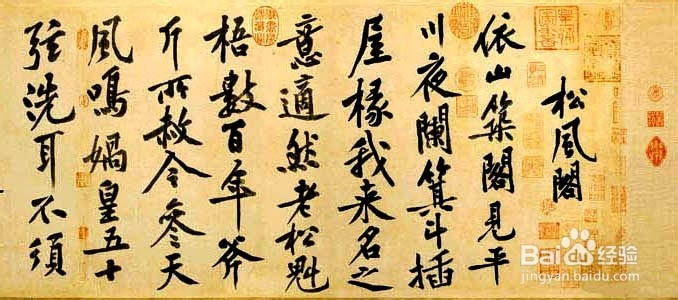 松風閣
依山築閣見平
川夜闌箕斗插
屋椽我來名之
意適然老松魁
梧數百年斧
斤所赦今參天
風鳴媧皇五十
弦洗耳不須
Bai du 经验
jingyan.baidu.com